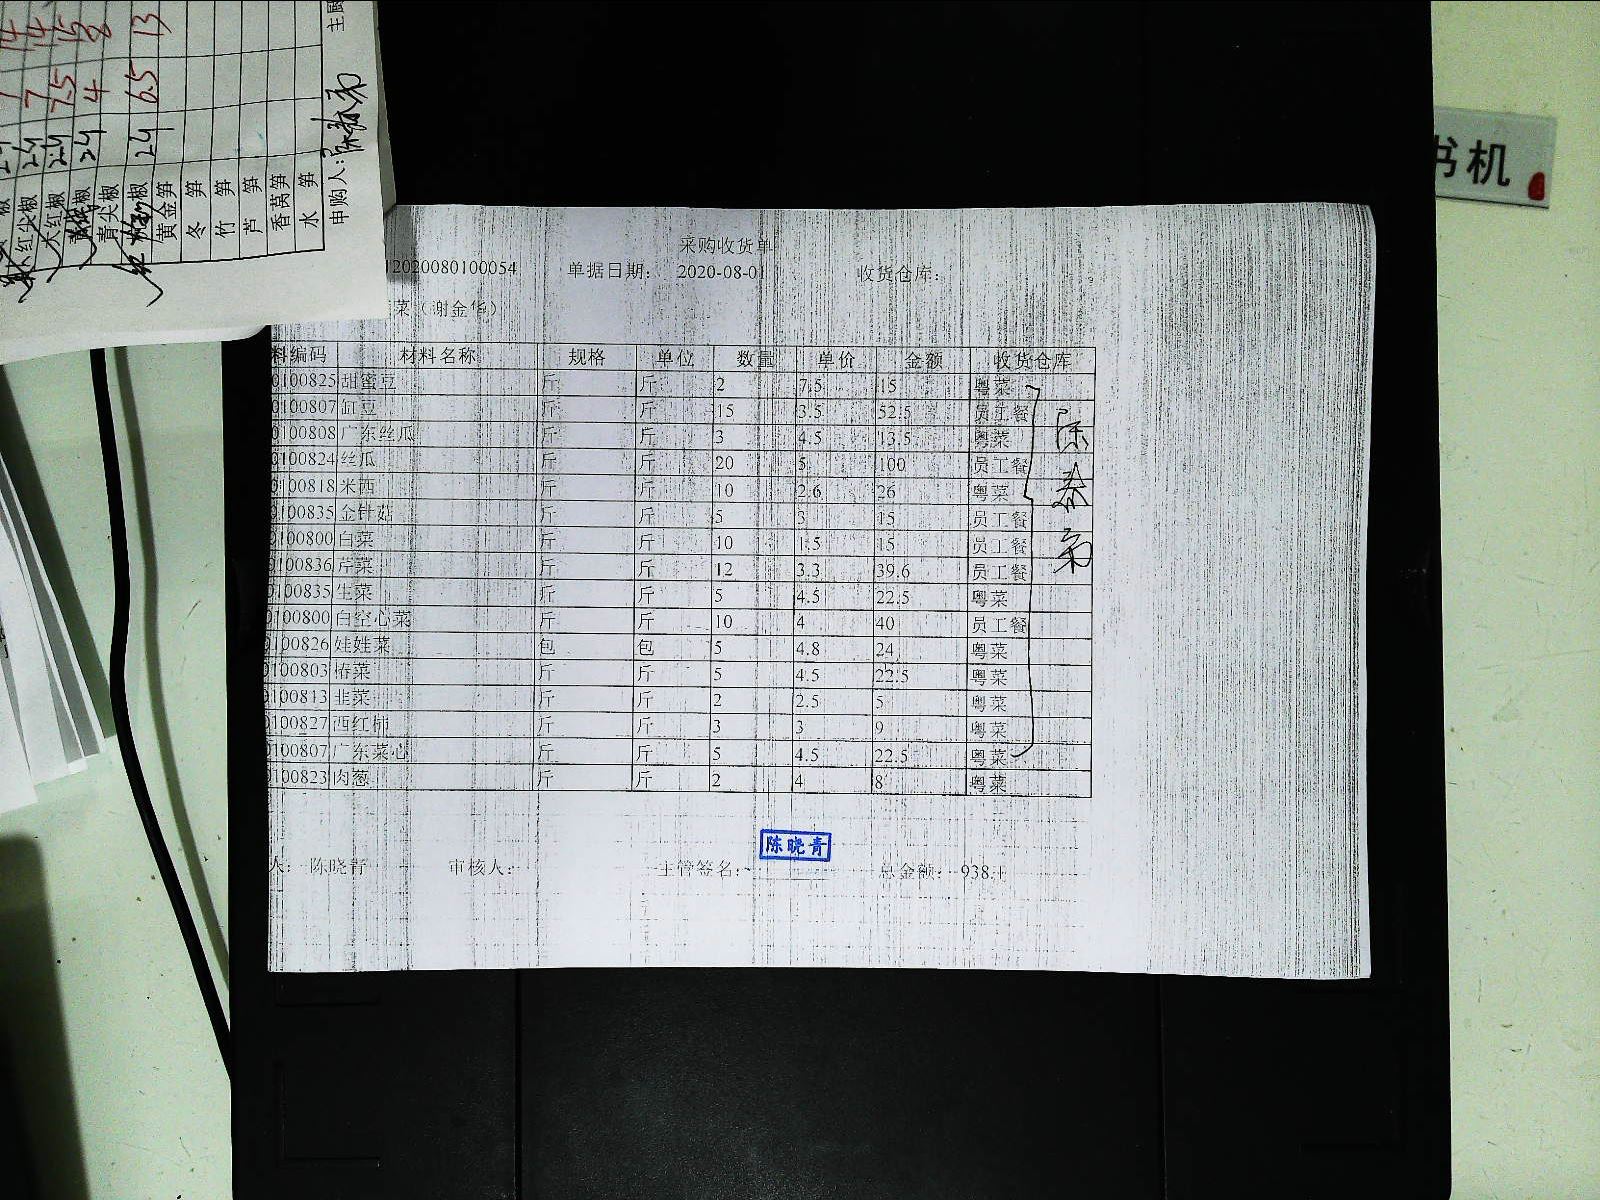 采购收货单
2020080100054 单据日期： 2020-08-01 收货仓库：
菜（谢金华）
料编码 材料名称 规格 单位 数量 单价 金额 收货仓库
0100825 甜蜜豆 斤 斤 2 7.5 15 粤菜
0100807 缸豆 斤 斤 15 3.5 52.5 员工餐
0100808 广东丝瓜 斤 斤 3 4.5 13.5 粤菜
0100824 丝瓜 斤 斤 20 5 100 员工餐
0100818 米西 斤 斤 10 2.6 26 粤菜
0100835 金针菇 斤 斤 5 3 15 员工餐
0100800 白菜 斤 斤 10 1.5 15 员工餐
0100836 芹菜 斤 斤 12 3.3 39.6 员工餐
0100835 生菜 斤 斤 5 4.5 22.5 粤菜
0100800 白空心菜 斤 斤 10 4 40 员工餐
0100826 娃娃菜 包 包 5 4.8 24 粤菜
0100803 椿菜 斤 斤 5 4.5 22.5 粤菜
0100813 韭菜 斤 斤 2 2.5 5 粤菜
0100827 西红柿 斤 斤 3 3 9 粤菜
0100807 广东菜心 斤 斤 5 4.5 22.5 粤菜
0100823 肉葱 斤 斤 2 4 8 粤菜
陈晓青
人： 陈晓青 审核人： 主管签名： 总金额： 938.
红尖椒 24 7 14
大红椒 24 7.5 15
24 4 8
青尖椒
椒 24 6.5 13
黄金笋
冬笋
竹笋
芦笋
香莴笋
水笋
申购人：
书机